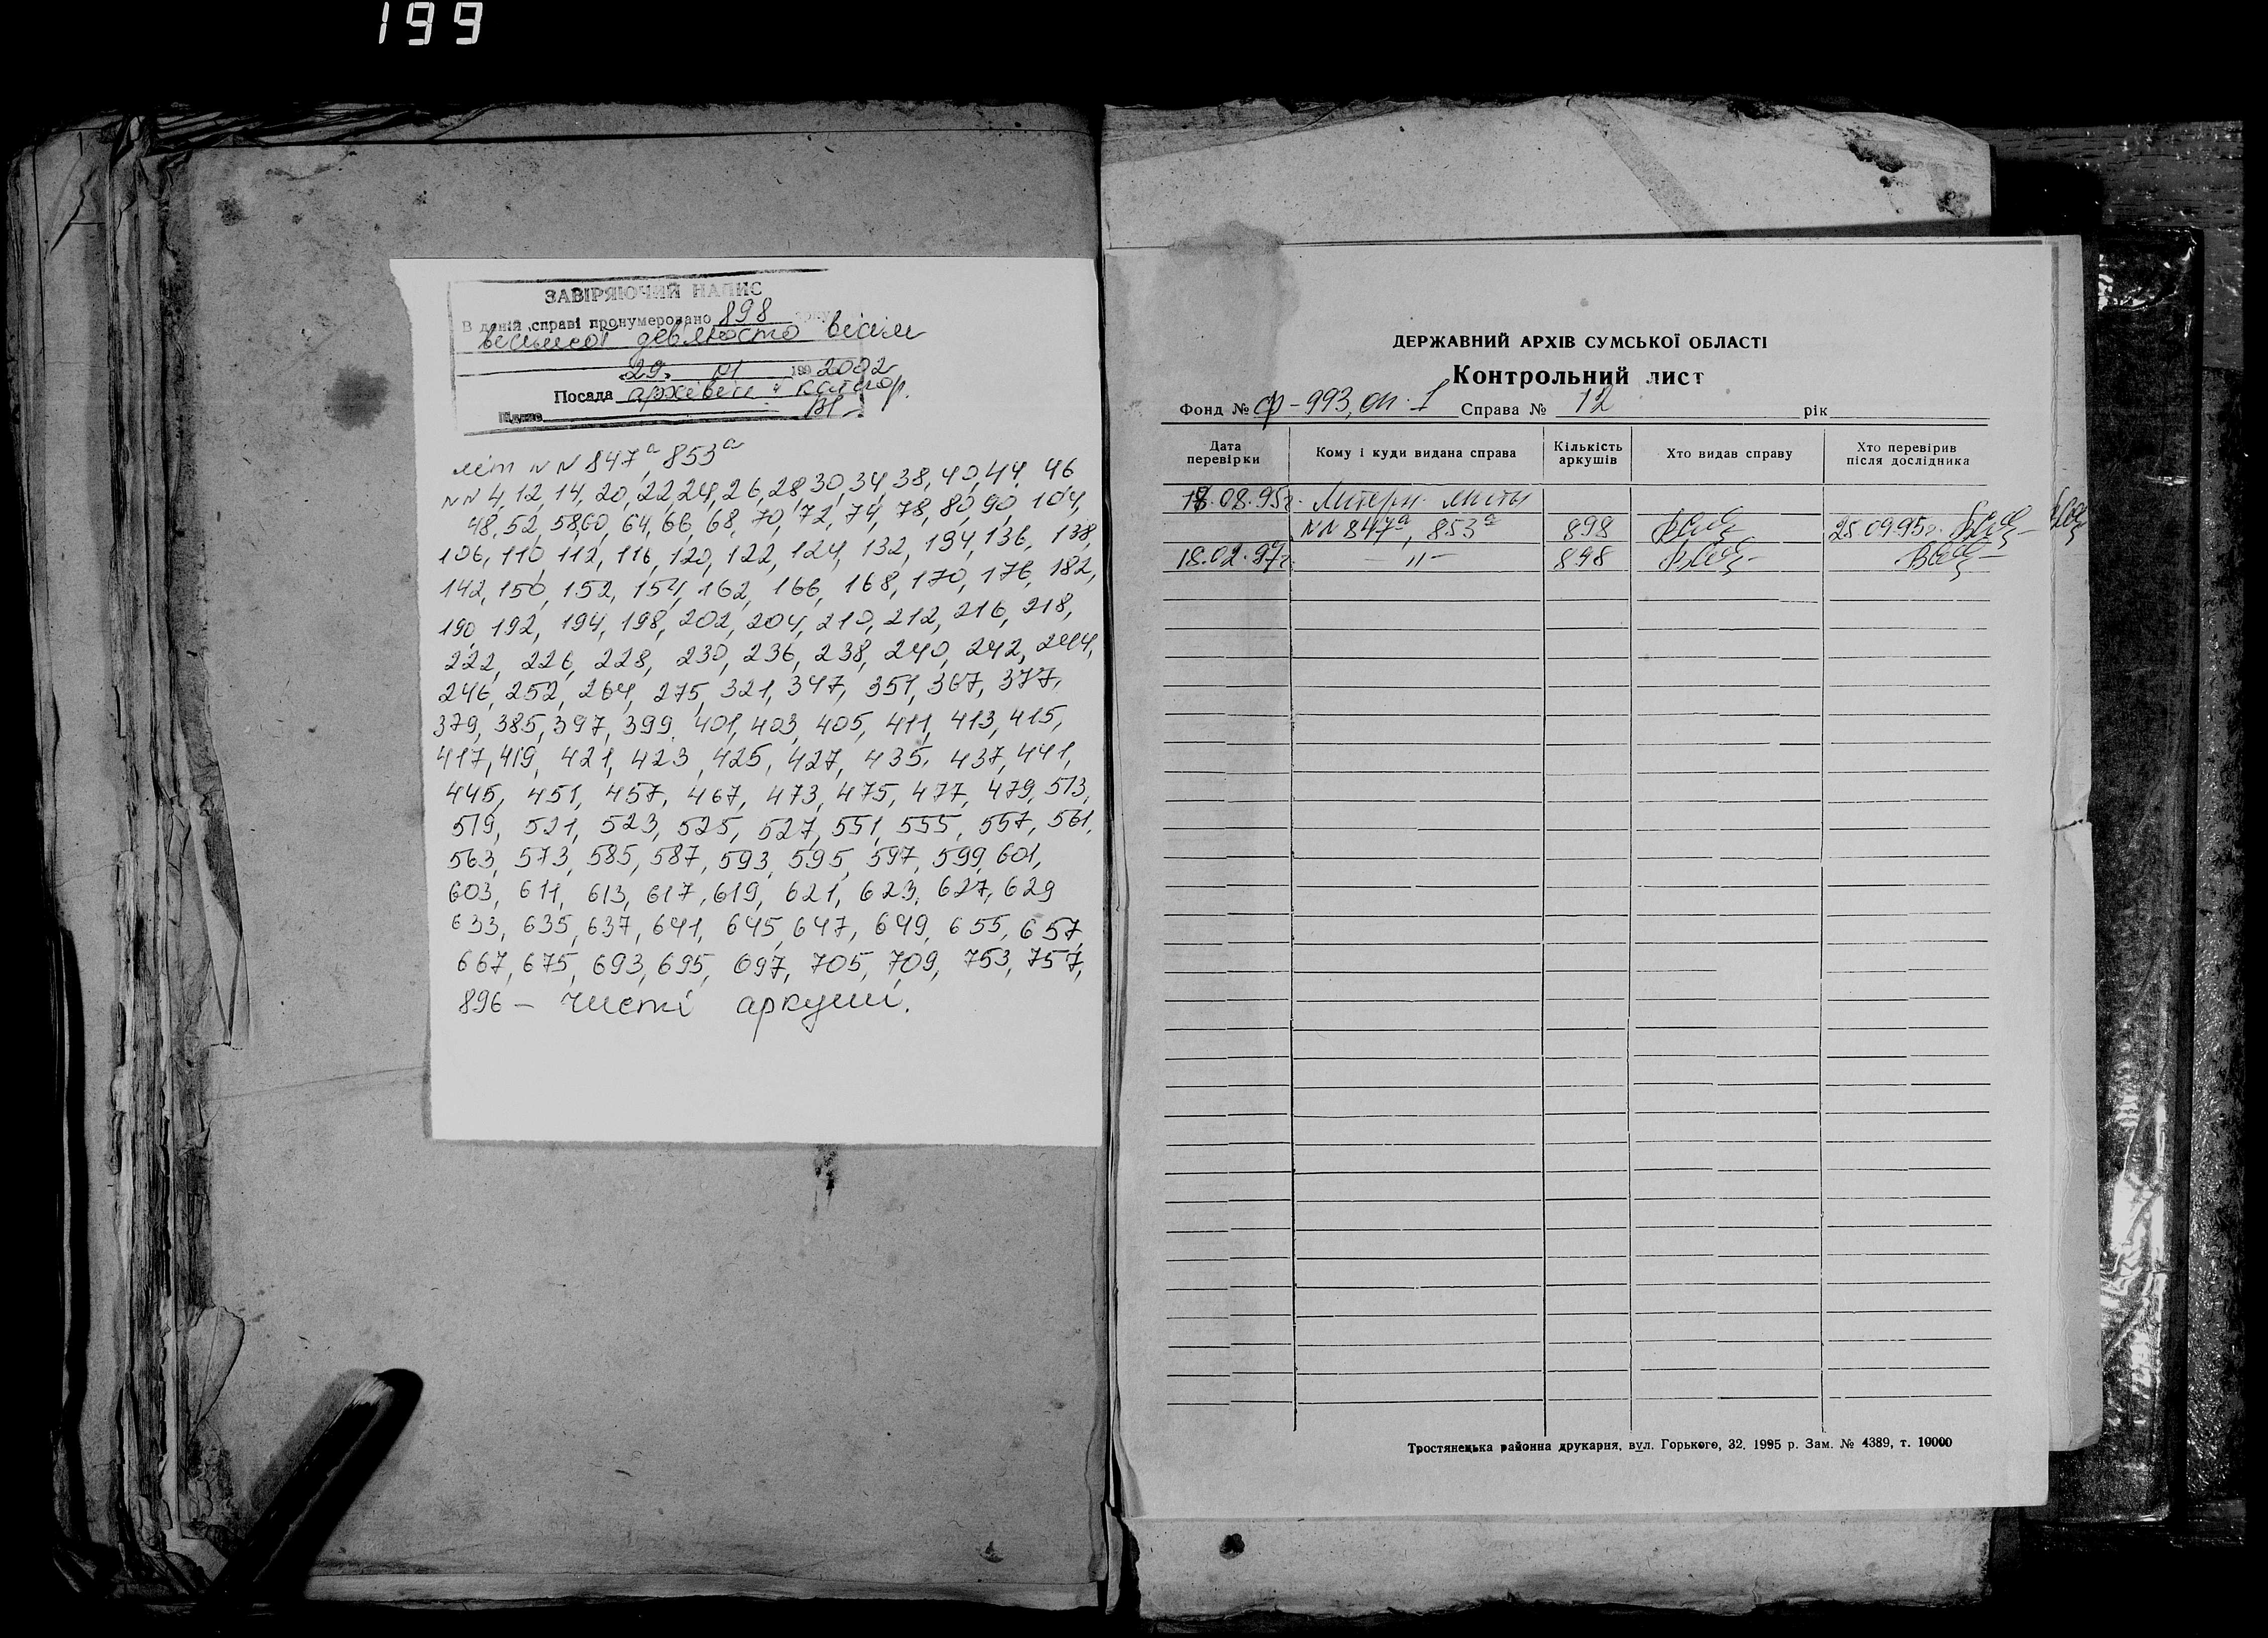 199
ЗАВІРЯЮЧИЙ НАПИС
В даній справі пронумеровано 898
вісімсот дев'яносто вісім
29. 01 199 2002
Посада архівіст категор.
Підпис
літ NN 847а, 853а
NN 4, 12, 14, 20, 22, 24, 26, 28, 30, 34, 38, 40, 44, 46
48, 52, 58, 60, 64, 66, 68, 70, 72, 74, 78, 80, 90, 104,
106, 110, 112, 116, 120, 122, 124, 132, 134, 136, 138,
142, 150, 152, 154, 162, 166, 168, 170, 176, 182,
190, 192, 194, 198, 202, 204, 210, 212, 216, 218,
222, 226, 228, 230, 236, 238, 240, 242, 244,
246, 252, 264, 275, 321, 347, 351, 367, 377,
379, 385, 397, 399, 401, 403, 405, 411, 413, 415,
417, 419, 421, 423, 425, 427, 435, 437, 441,
445, 451, 457, 467, 473, 475, 477, 479, 513,
519, 521, 523, 525, 527, 551, 555, 557, 561,
563, 573, 585, 587, 593, 595, 597, 599, 601,
603, 611, 613, 617, 619, 621, 623, 627, 629
633, 635, 637, 641, 645, 647, 649, 655, 657,
667, 675, 693, 695, 697, 705, 709, 753, 757,
896 – чисті аркуші.
ДЕРЖАВНИЙ АРХІВ СУМСЬКОЇ ОБЛАСТІ
Контрольний лист
Фонд № ф-993, оп. 1 Справа № 12 рік
Дата перевірки Кому і куди видана справа Кількість аркушів Хто видав справу Хто перевірив після дослідника
18.08.95г. Литерн. листы
NN 847а, 853а 898 25.09.95г.
18.02.97г. — " — 898
Тростянецька районна друкарня, вул. Горького, 32. 1995 р. Зам. № 4389, т. 10000